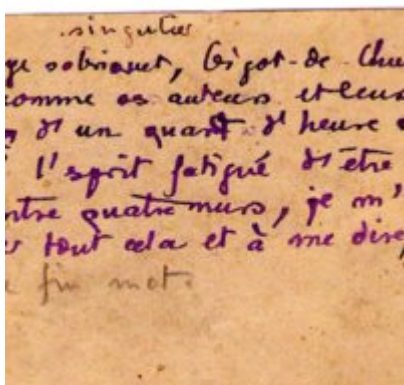 singulier
sobriquet, Bigot-de
comme os auteurs et leurs
d'un quart d'heure
l'esprit fatigué d'être
ntre quatre murs, je m'
tout cela et à me dire,
fin mot.